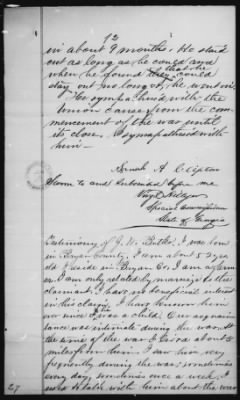 12
in about 9 months. He staid
out as long as he could and
when he found that he could
stay out no longer, he went in.
He sympathised with the
Union cause from the com-
mencement of the war until
its close. I sympathised with
him—
A. Clifton
Sworn to and Subscribed before me
Special Commissioner
State of Georgia
Testimony of J. W. Butler. I was born
in Bryan County. I am about 52 years
old. I reside in Bryan Co. I am a farmer.
I am only related by marriage to the
claimant. I have no beneficial interest
in this claim. I have known him
since I was a child. Our acquain-
tance was intimate during the war. At
the time of the war I lived about 5
miles from him. I saw him very
frequently during the war, sometimes
every day, sometimes once a week. I
used to talk with him about the war
27